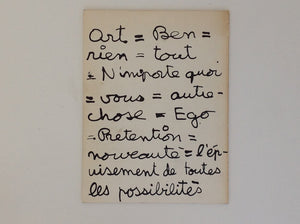 art = Ben =
rien = tout
= N'importe quoi
= vous = autre-
chose = Ego
= Pretention =
nouveauté = l'ép-
uisement de toutes
les possibilités